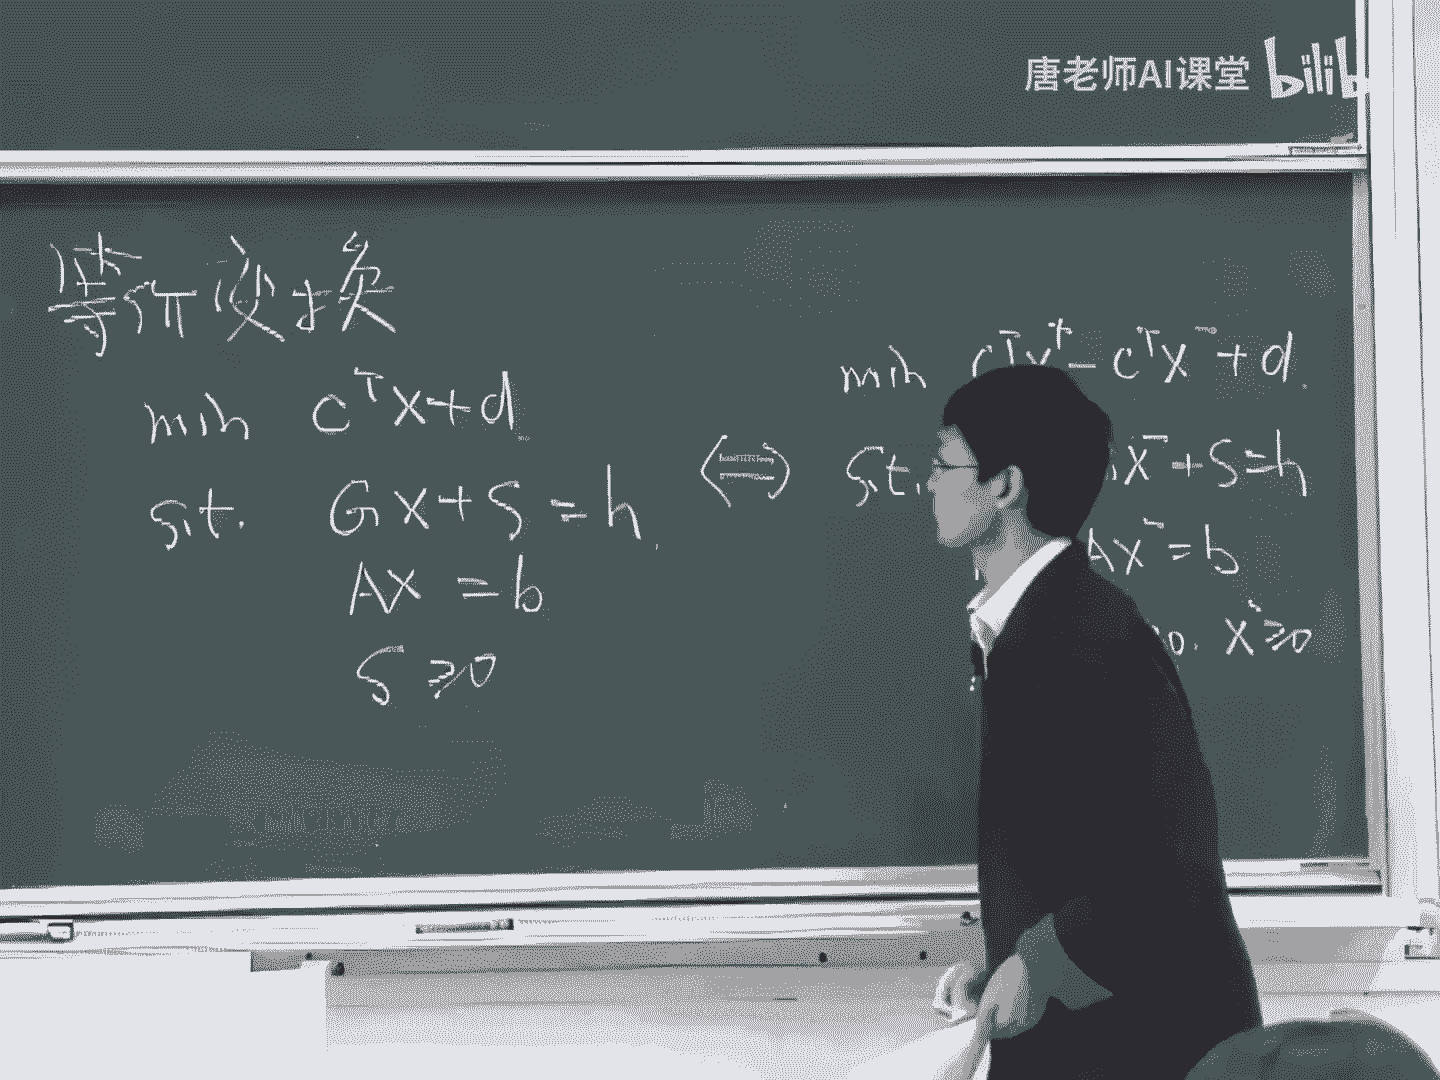 唐老师AI课堂 bilib
等价变换
min cᵀx+d
s.t. Gx+s=h
Ax=b
s≥0
⟺
min cᵀx⁺-cᵀx⁻+d
s.t. x⁻+s=h
Ax⁻=b
x⁻≥0